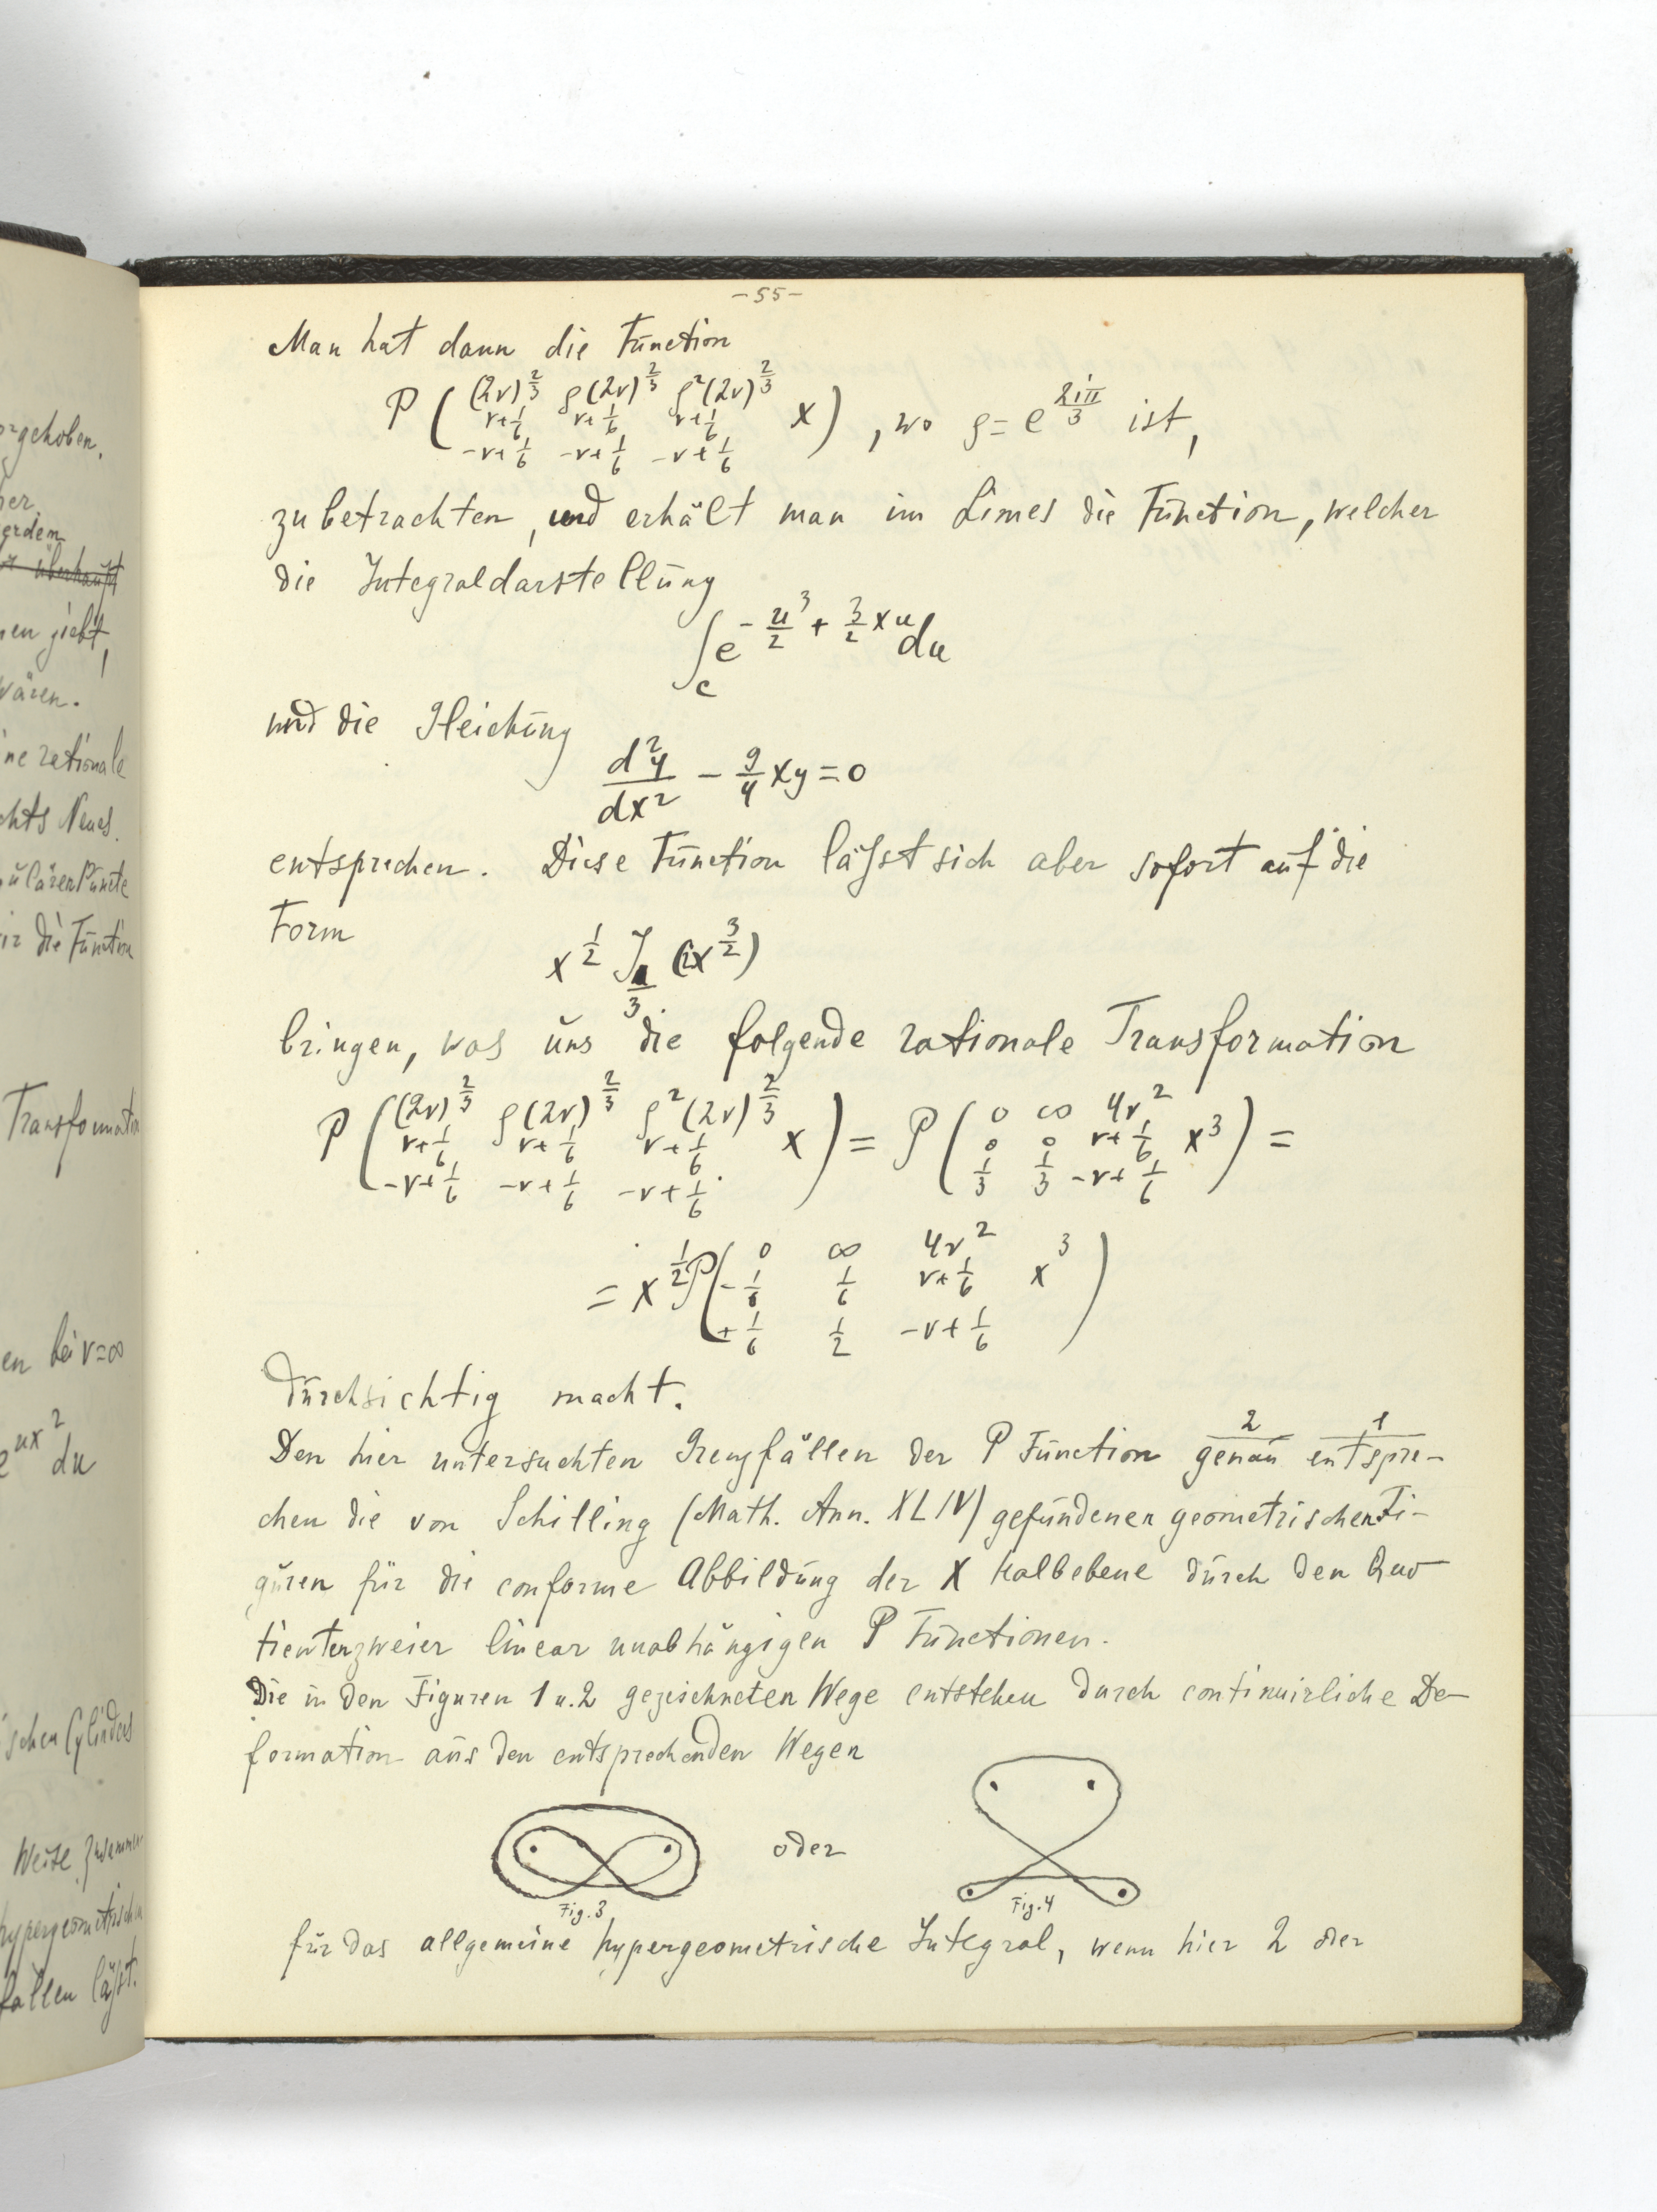 -55-
Man hat dann die Function
P ( (2ν)^{2/3} ρ(2ν)^{2/3} ρ²(2ν)^{2/3}
ν+1/6 ν+1/6 ν+1/6 x ) , wo ρ = e^{2iπ/3} ist,
-ν+1/6 -ν+1/6 -ν+1/6
zu betrachten, und erhält man im Limes die Function, welcher
die Integraldarstellung
∫_c e^{-u³/2 + 3/2 xu} du
und die Gleichung
d²y/dx² - 9/4 xy = 0
entsprechen. Diese Function läßst sich aber sofort auf die
Form
x^{1/2} J_{1/3} (ix^{3/2})
bringen, was uns die folgende rationale Transformation
P ( (2ν)^{2/3} ρ(2ν)^{2/3} ρ²(2ν)^{2/3} ) = P ( 0 ∞ 4ν² ) =
ν+1/6 ν+1/6 ν+1/6 x 0 0 ν+1/6 x³
-ν+1/6 -ν+1/6 -ν+1/6 1/3 1/3 -ν+1/6
= x^{1/2} P ( 0 ∞ 4ν²
-1/6 1/6 ν+1/6 x³ )
+1/6 1/2 -ν+1/6
durchsichtig macht.
2 1
Den hier untersuchten Grenzfällen der P Function genau entspre-
chen die von Schilling (Math. Ann. XLIV) gefundenen geometrischen Fi-
guren für die conforme Abbildung der X Halbebene durch den Quo-
tienten zweier linear unabhängigen P Functionen.
Die in den Figuren 1 u. 2 gezeichneten Wege entstehen durch continuirliche De-
formation aus den entsprechenden Wegen
oder
Fig. 3 Fig. 4
für das allgemeine hypergeometrische Integral, wenn hier 2 oder
gehoben.
überhaupt
giebt,
wären.
rationale
Neues.
die Function
Transformation
en bei ν=∞
e^{ux²} du
schen Cylinders
Weise
fallen läßt.